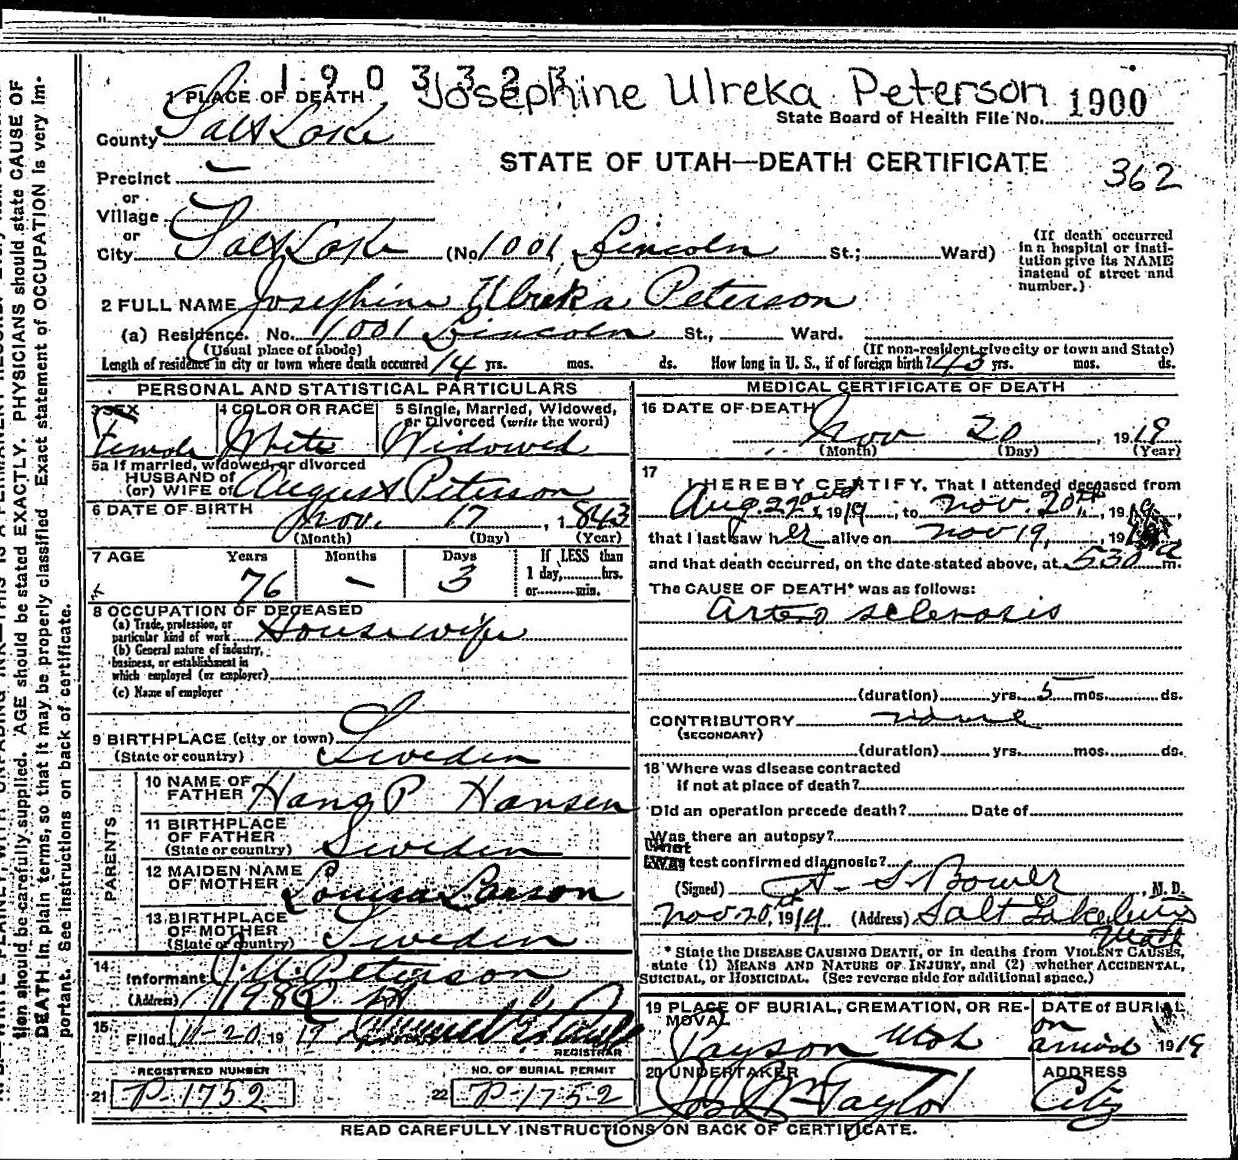 1903323
Josephine Ulreka Peterson
1900
1 PLACE OF DEATH
State Board of Health File No.
County Salt Lake
STATE OF UTAH—DEATH CERTIFICATE
362
Precinct
or
Village
or
City Salt Lake (No. 1001 Lincoln St.; Ward)
(If death occurred in a hospital or institution give its NAME instead of street and number.)
2 FULL NAME Josephine Ulreka Peterson
(a) Residence. No. 1001 Lincoln St., Ward.
(Usual place of abode) (If non-resident give city or town and State)
Length of residence in city or town where death occurred 14 yrs. mos. ds. How long in U. S., if of foreign birth? 43 yrs. mos. ds.
PERSONAL AND STATISTICAL PARTICULARS
3 SEX Female
4 COLOR OR RACE White
5 Single, Married, Widowed, or Divorced (write the word) Widowed
5a If married, widowed, or divorced
HUSBAND of
(or) WIFE of August Peterson
6 DATE OF BIRTH Nov. 17, 1843
(Month) (Day) (Year)
7 AGE Years Months Days If LESS than
76 — 3 1 day, hrs.
or min.
8 OCCUPATION OF DECEASED
(a) Trade, profession, or
particular kind of work Housewife
(b) General nature of industry,
business, or establishment in
which employed (or employer)
(c) Name of employer
9 BIRTHPLACE (city or town)
(State or country) Sweden
PARENTS
10 NAME OF FATHER Hans P Hansen
11 BIRTHPLACE OF FATHER (State or country) Sweden
12 MAIDEN NAME OF MOTHER Louisa Larson
13 BIRTHPLACE OF MOTHER (State or country) Sweden
14 Informant J. U. Peterson
(Address)
15 Filed 11-20 1919
REGISTRAR
REGISTERED NUMBER NO. OF BURIAL PERMIT
21 P-1752 22 P-1752
MEDICAL CERTIFICATE OF DEATH
16 DATE OF DEATH
Nov 20, 1919
(Month) (Day) (Year)
17 I HEREBY CERTIFY, That I attended deceased from
Aug. 22nd, 1919, to Nov. 20th, 1919,
that I last saw her alive on Nov 19, 1919
and that death occurred, on the date stated above, at 530 a m.
The CAUSE OF DEATH* was as follows:
Arterio sclerosis
(duration) yrs. 5 mos. ds.
CONTRIBUTORY none
(SECONDARY)
(duration) yrs. mos. ds.
18 Where was disease contracted
if not at place of death?
Did an operation precede death? Date of
Was there an autopsy?
What test confirmed diagnosis?
(Signed) A. S. Bower, M. D.
Nov. 20th, 1919 (Address) Salt Lake City
Utah
* State the DISEASE CAUSING DEATH, or in deaths from VIOLENT CAUSES,
state (1) MEANS AND NATURE OF INJURY, and (2) whether ACCIDENTAL,
SUICIDAL, or HOMICIDAL. (See reverse side for additional space.)
19 PLACE OF BURIAL, CREMATION, OR REMOVAL Payson Utah
DATE OF BURIAL on arrival 1919
20 UNDERTAKER Jos. Wm Taylor
ADDRESS City
READ CAREFULLY INSTRUCTIONS ON BACK OF CERTIFICATE.
tion should be carefully supplied. AGE should be stated EXACTLY. PHYSICIANS should state CAUSE OF
DEATH in plain terms, so that it may be properly classified. Exact statement of OCCUPATION is very im-
portant. See instructions on back of certificate.